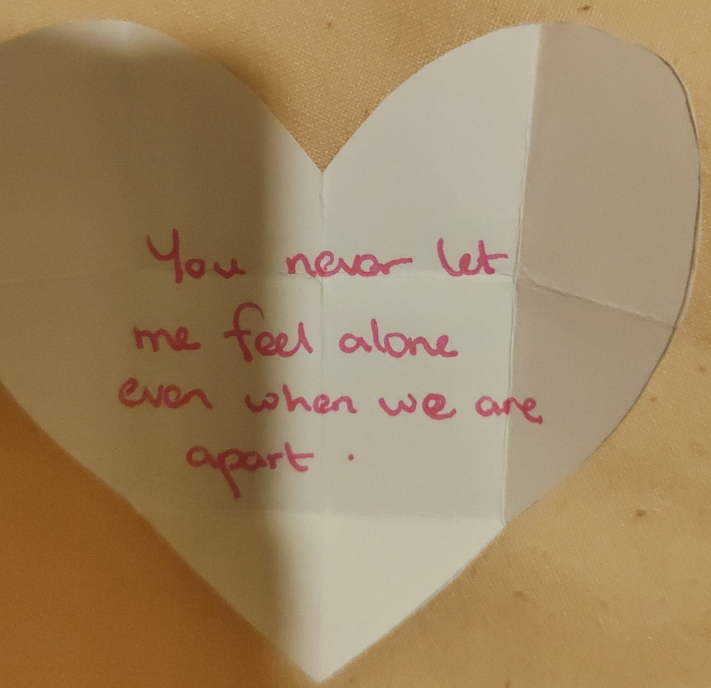 You never let
me feel alone
even when we are
apart.